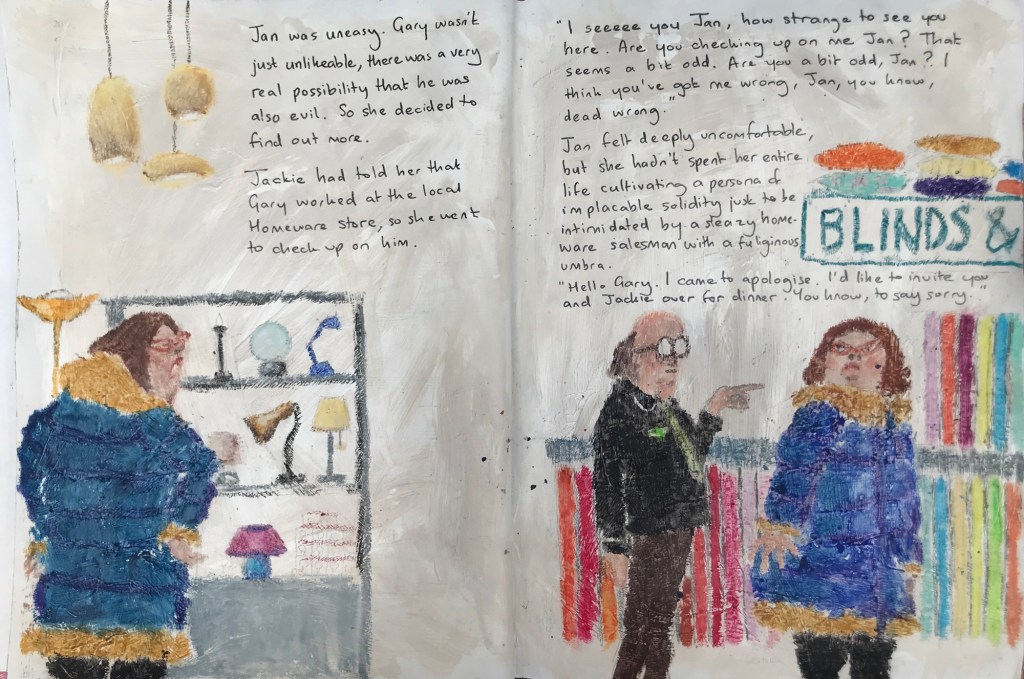 Jan was uneasy. Gary wasn't
just unlikeable, there was a very
real possibility that he was
also evil. So she decided to
find out more.
Jackie had told her that
Gary worked at the local
Homeware store, so she went
to check up on him.
"I seeeee you Jan, how strange to see you
here. Are you checking up on me Jan? That
seems a bit odd. Are you a bit odd, Jan? I
think you've got me wrong, Jan, you know,
dead wrong."
Jan felt deeply uncomfortable,
but she hadn't spent her entire
life cultivating a persona of
implacable solidity just to be
intimidated by a sleazy home-
ware salesman with a fuliginous
umbra.
"Hello Gary. I came to apologise. I'd like to invite you
and Jackie over for dinner. You know, to say sorry."
BLINDS &